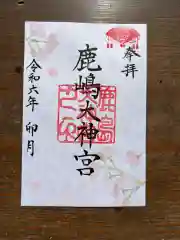 奉拝
鹿嶋大神宮
令和六年
卯月